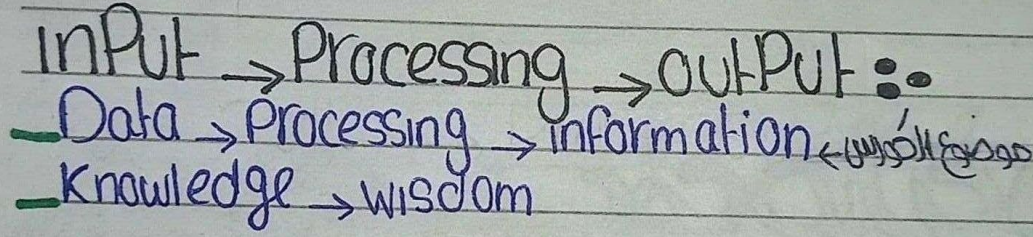 inPut → Processing → outPut :-
_ Data → Processing → information ← موضوع الدرس
_ Knowledge → wisdom